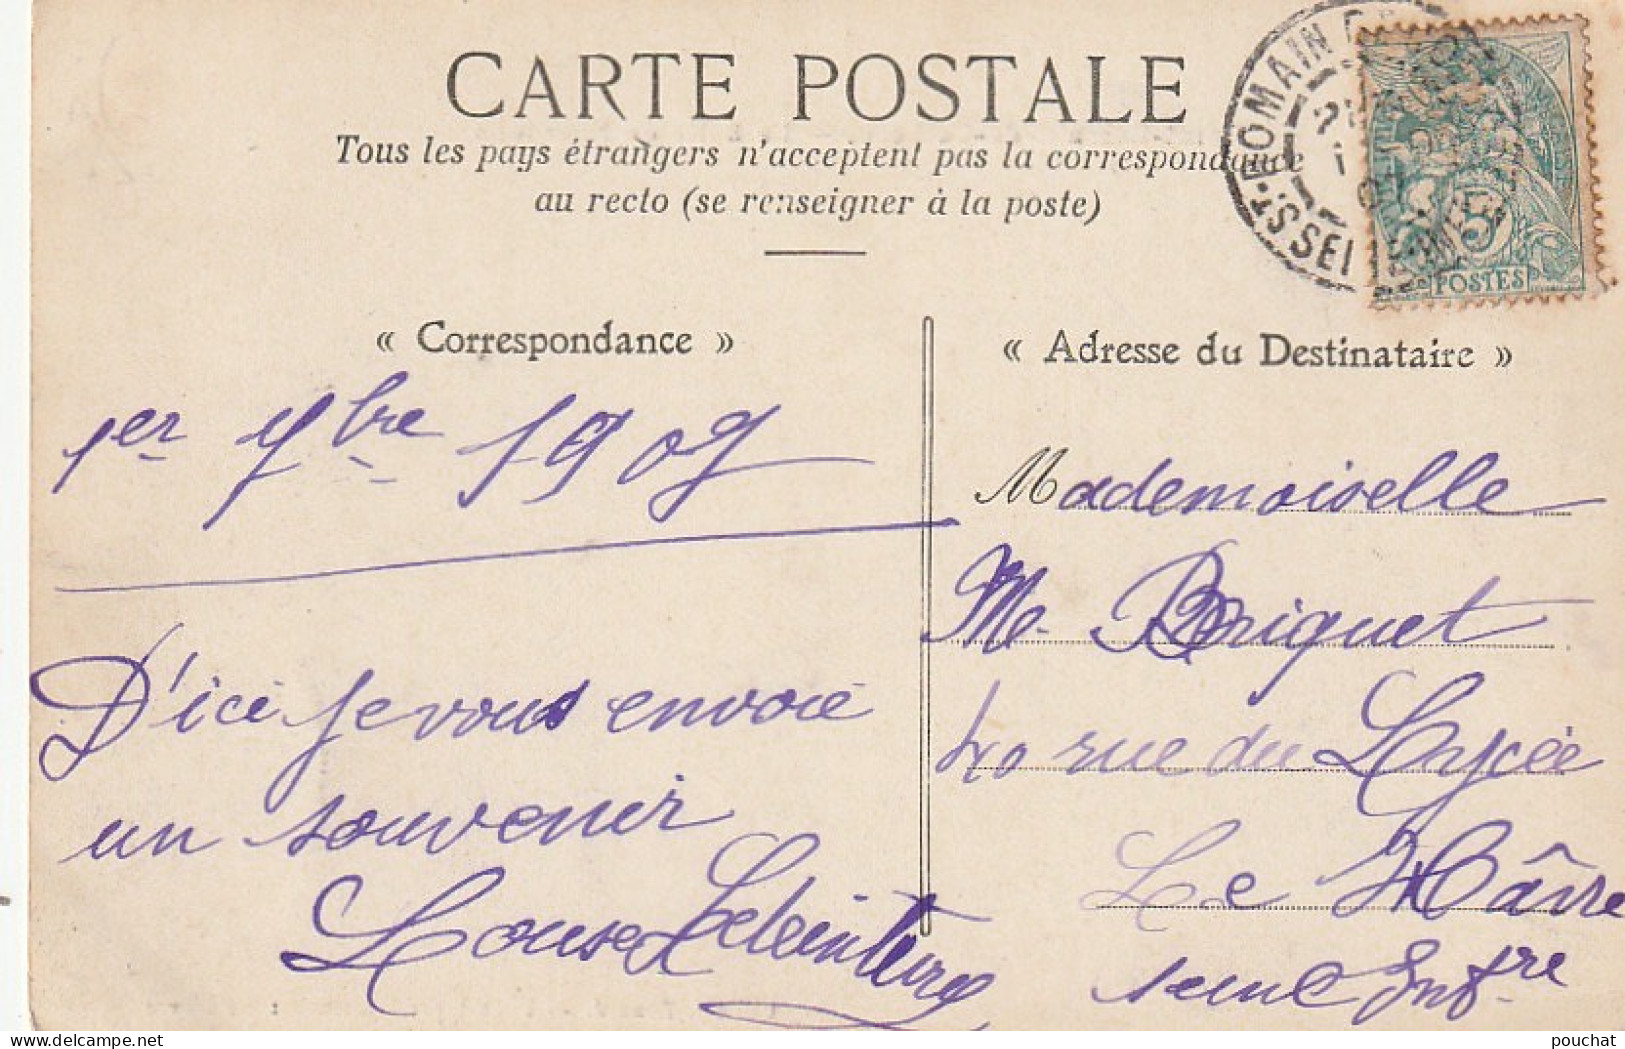 CARTE POSTALE
Tous les pays étrangers n'acceptent pas la correspondance
au recto (se renseigner à la poste)
ROMAIN
ST
SEI
5
POSTES
« Correspondance »
1er 7bre 1907
D'ici je vous envoie
un souvenir
Louise
« Adresse du Destinataire »
Mademoiselle
M. Briquet
40 rue du Lycée
Le Hâvre
Seine Infre
delcampe.net
pouchat